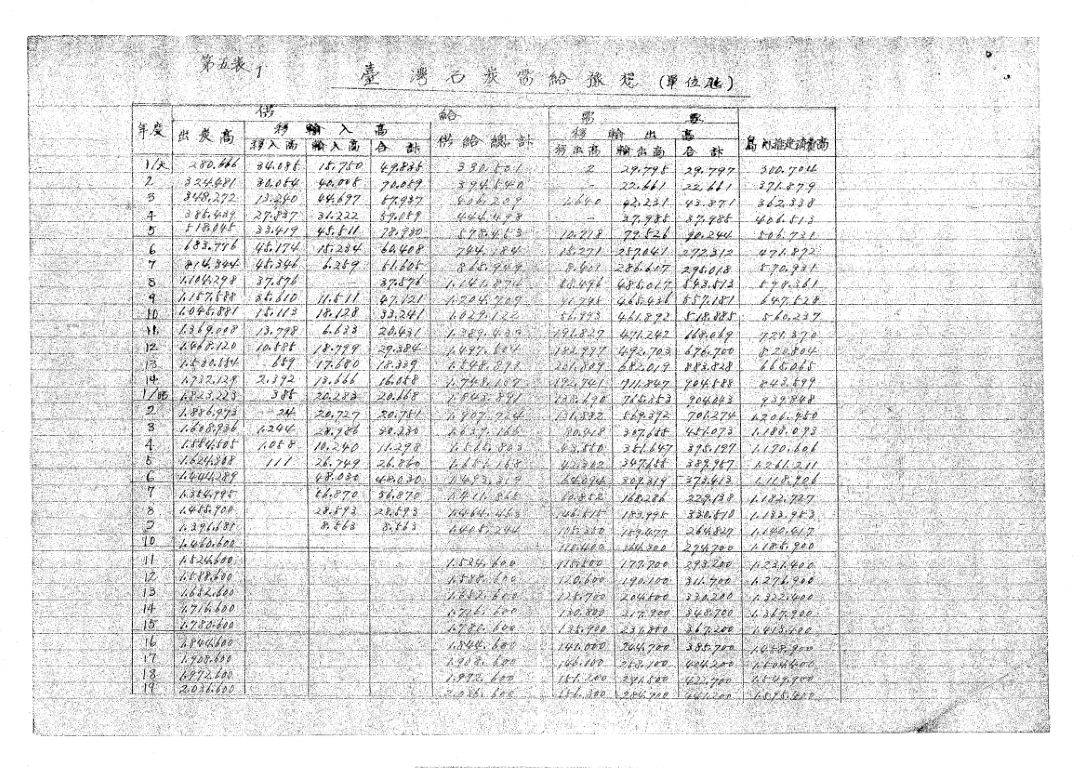 第五表 1
臺灣石炭需給豫想 (單位瓲)
供 給 需 要
年度 出炭高 移輸入高 供給總計 移輸出高 島內推定消費高
移入高 輸入高 合計 移出高 輸出高 合計
1/大 280.666 34.085 15.750 49.835 330.501 2 29.795 29.797 300.704
2 324.481 30.054 40.005 70.059 394.540 - 22.661 22.661 371.879
3 348.272 13.240 44.697 57.937 406.209 1.640 42.231 43.871 362.338
4 385.439 27.837 31.222 59.059 444.498 - 37.985 37.985 406.513
5 518.045 33.419 45.511 78.930 10.718 79.526 90.244 506.731
6 45.174 15.234 60.408 744.184 15.271 257.041 272.312 471.872
7 814.344 45.346 6.259 51.605 865.949 8.401 286.617 295.018 570.931
8 1.104.298 37.576 - 37.576 1.141.874 485.017 543.513 598.361
9 1.157.588 35.610 11.511 47.121 1.204.709 465.436 557.181 647.528
10 1.045.881 15.113 18.128 33.241 56.993 461.892 518.885 560.237
11 1.369.008 13.798 6.633 20.431 1.389.439 471.242
12 1.468.120 10.585 18.799 29.384 1.497.504 492.703
13 1.530.554 659 17.680 18.339 1.548.893 201.809 682.019 883.828 665.065
14 1.732.129 2.392 13.666 16.058 1.748.187 192.741 711.847 904.588 843.599
1/昭 1.823.223 385 20.283 20.668 1.843.891 138.690 765.353 904.043 939.848
2 1.886.973 24 20.727 20.751 1.907.724 131.882 569.392 701.274 1.206.450
3 1.244 28.986 30.230 1.637.166 457.073
4 1.554.505 1.058 10.240 11.298 1.565.803 43.550 351.647 395.197 1.170.606
5 111 26.749 26.860 42.302 347.655 389.957 1.261.211
6 48.030 48.030 64.094 309.319 373.413 1.118.906
7 1.354.995 56.870 56.870 1.411.865 60.852 168.286 229.138 1.182.727
8 28.593 28.593 146.515 183.995 330.510 1.133.953
9 1.396.681 8.563 8.563 1.405.244 189.477 264.827 1.140.417
10 1.460.600 1.185.900
11 1.524.600 1.524.600 115.500 177.700 293.200 1.231.400
12 1.588.600 1.588.600 120.600 190.100 311.700 1.276.900
13 1.652.600 1.652.600 125.700 204.500 330.200 1.322.400
14 1.716.600 1.716.600 130.800 217.900 348.700 1.367.900
15 1.780.600 1.780.600 135.900 367.200 1.413.400
16 1.844.600 1.844.600 141.000 244.700 385.700 1.458.900
17 1.908.600 1.908.600 146.100 258.100 404.200 1.504.400
18 1.972.600 1.972.600 151.200 271.500 422.700 1.549.900
19 2.036.600 2.036.600 156.300 284.900 441.200 1.595.400